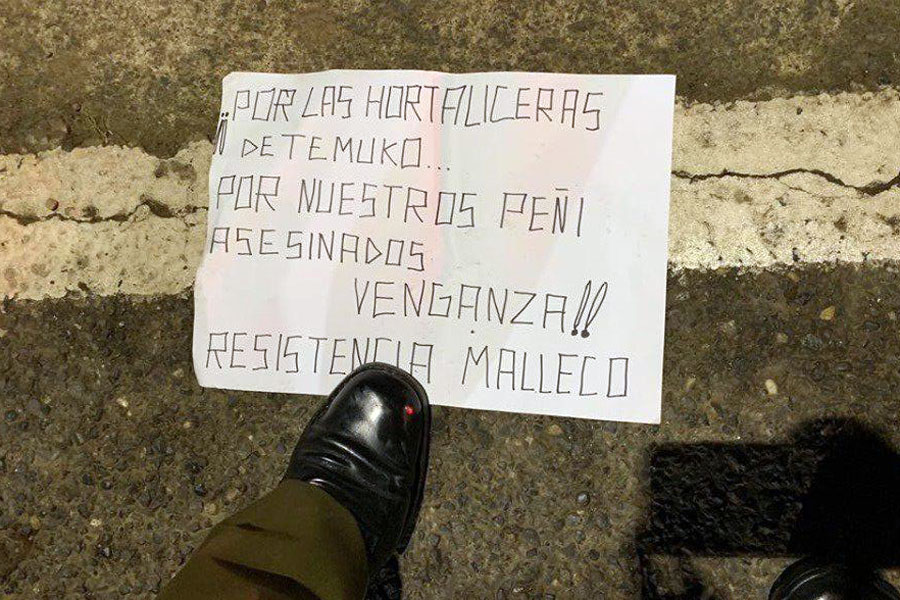 ¡¡POR LAS HORTALICERAS
DE TEMUKO...
POR NUESTROS PEÑI
ASESINADOS
VENGANZA!!
RESISTENCIA MALLECO